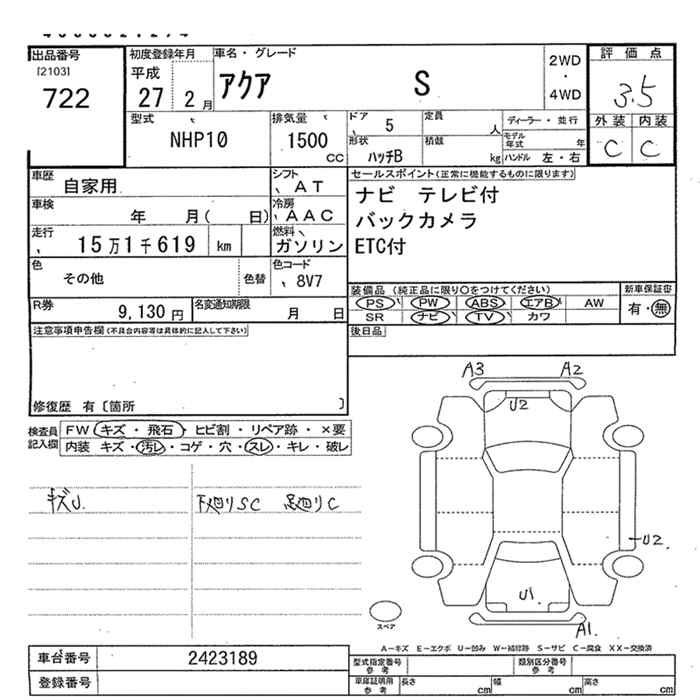 出品番号
[2103]
722
初度登録年月
平成
27 2 月
車名・グレード
アクア S
2WD
・
4WD
評価点
3.5
外装 内装
C C
型式
NHP10
排気量
1500
CC
ドア
5
形状
ハッチB
定員
人
積載
kg
ディーラー・並行
モデル年式 年
ハンドル 左・右
車歴
自家用
シフト
AT
車検
年 月( 日)
冷房
AAC
走行
15万1千619 km
燃料
ガソリン
色
その他
色替
色コード
8V7
R券
9,130 円
名変通知期限
月 日
セールスポイント(正常に機能するものに限ります)
ナビ テレビ付
バックカメラ
ETC付
装備品(純正品に限り○をつけてください)
PS PW ABS エアB AW
SR ナビ TV カワ
新車保証書
有・無
後日品
注意事項申告欄(不具合内容等は具体的に記入して下さい)
修復歴 有〔箇所 〕
検査員
記入欄
FW キズ・飛石・ヒビ割・リペア跡・×要
内装 キズ・汚レ・コゲ・穴・スレ・キレ・破レ
キズU
下廻りSC 足廻りC
A3 A2
U2
U2
U1
A1
スペア
A-キズ E-エクボ U-凹み W-補修跡 S-サビ C-腐食 XX-交換済
車台番号
2423189
登録番号
型式指定番号
参考
類別区分番号
参考
車庫証明用
参考
長さ cm
幅 cm
高さ cm